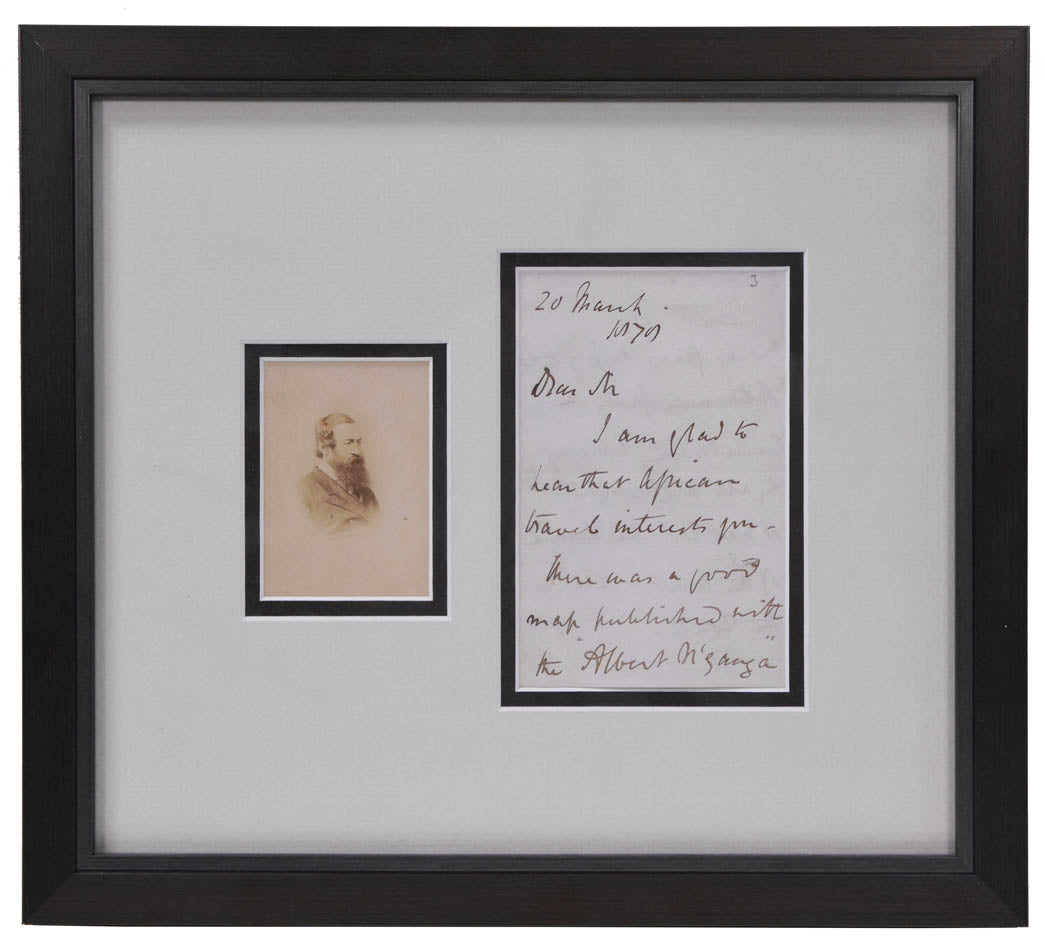 3
20 March.
1879
Dear Sir
I am glad to
hear that African
travels interests you -
There was a good
map published with
the "Albert N'yanza"